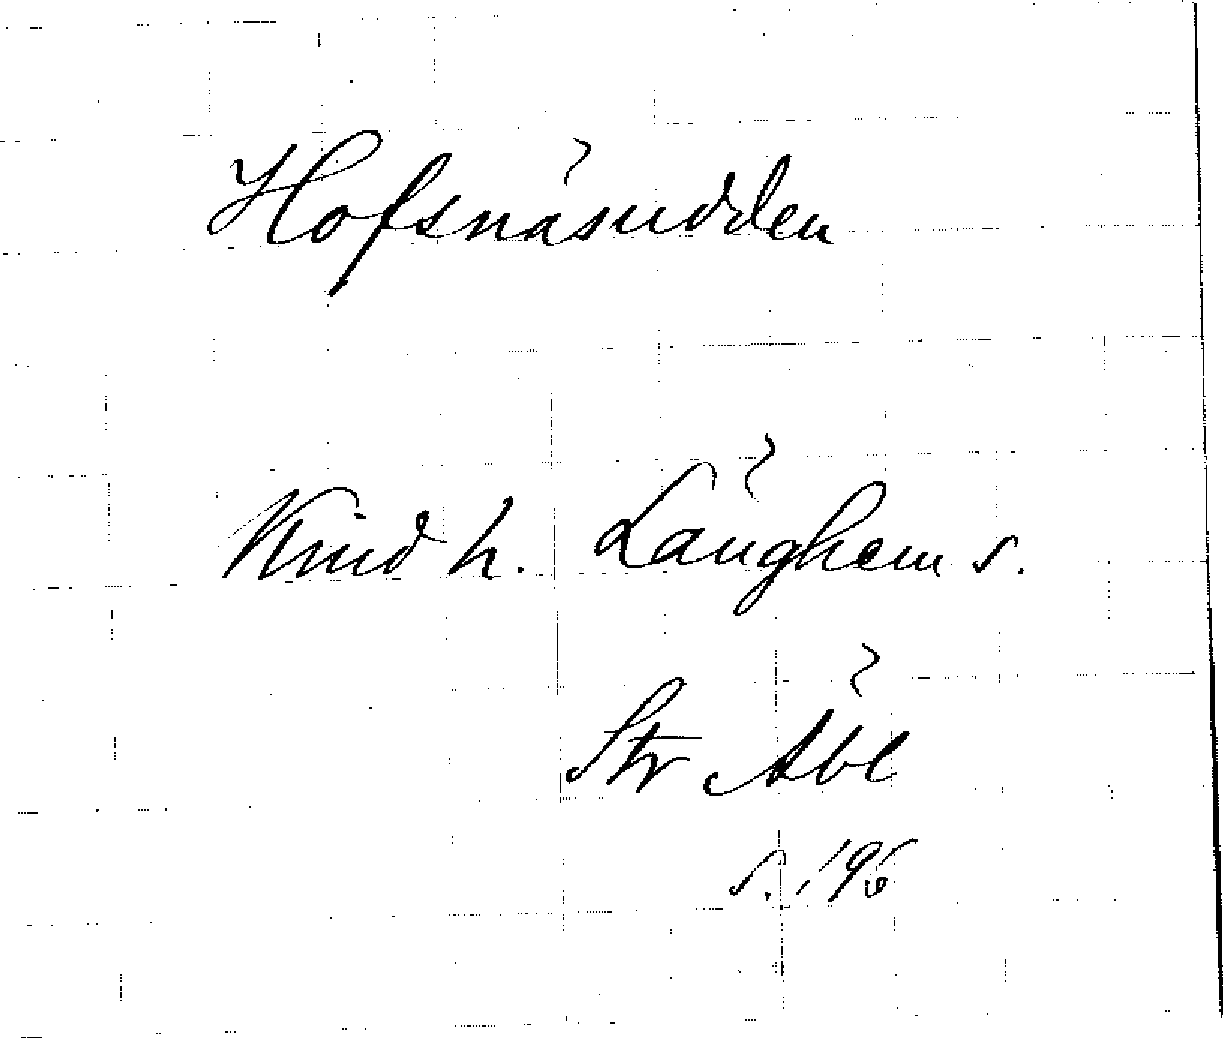 Hofsnäsudden
Kind h. Länghem s.
Str Äbl
s. 196